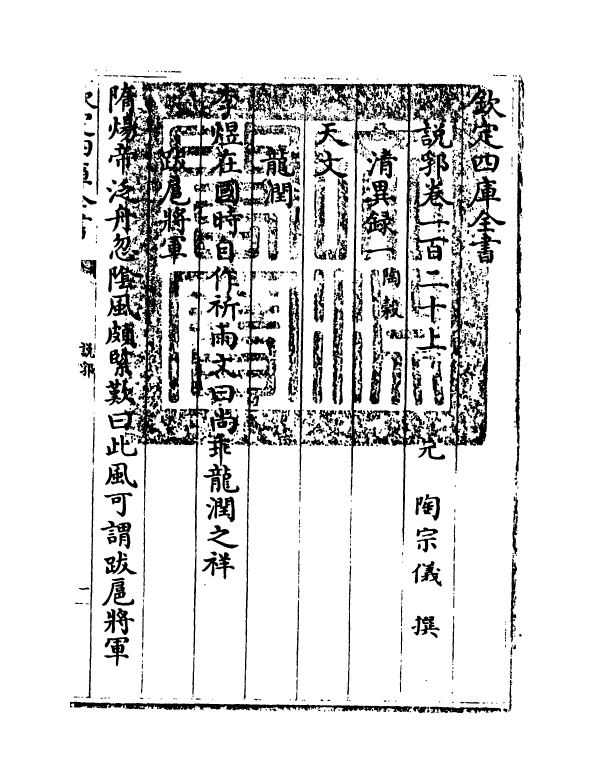 欽定四庫全書
說郛卷一百二十上 元 陶宗儀 撰
清異録一 陶穀
天文
龍潤
李煜在國時自作祈雨文曰尚乖龍潤之祥
跋扈將軍
隋煬帝泛舟忽陰風頗緊歎曰此風可謂跋扈將軍
欽定四庫全書
說郛
一